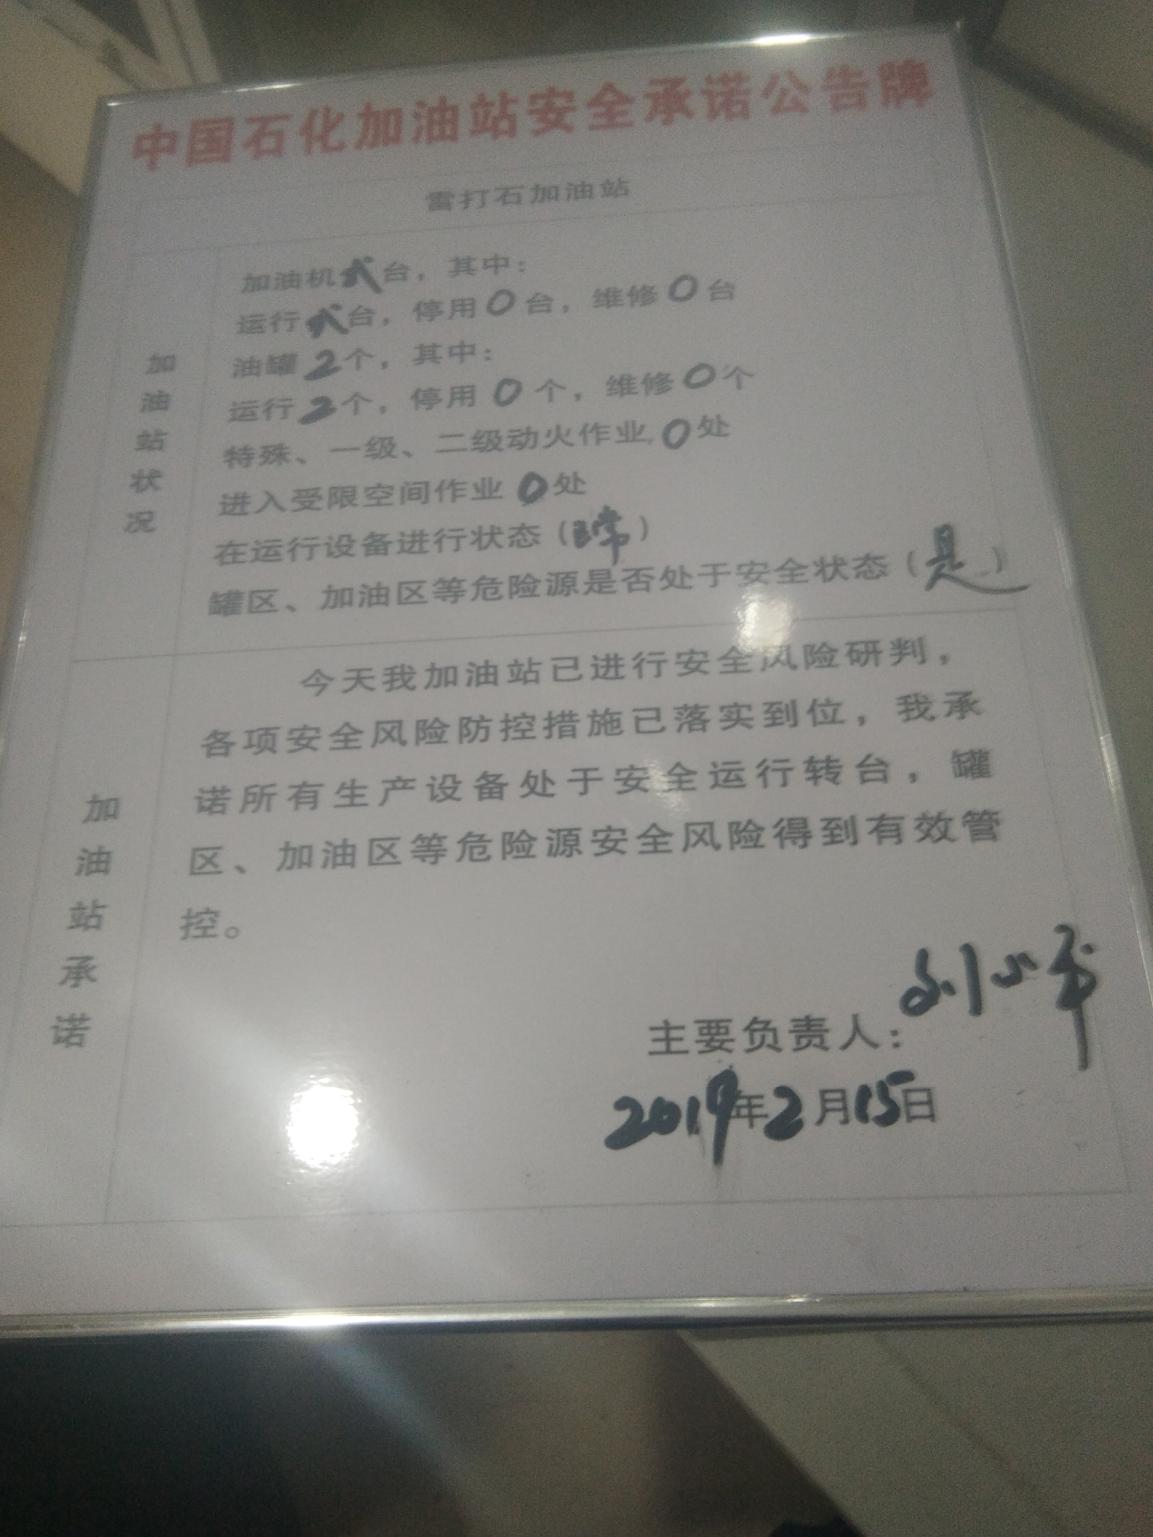 中国石化加油站安全承诺公告牌
雷打石加油站
加油站状况
加油机 台，其中：
运行 台，停用0台，维修0台
油罐2个，其中：
运行2个，停用0个，维修0个
特殊、一级、二级动火作业0处
进入受限空间作业0处
在运行设备进行状态（正常）
罐区、加油区等危险源是否处于安全状态（是）
加油站承诺
今天我加油站已进行安全风险研判，
各项安全风险防控措施已落实到位，我承
诺所有生产设备处于安全运行转台，罐
区、加油区等危险源安全风险得到有效管
控。
主要负责人：刘小平
2019年2月15日